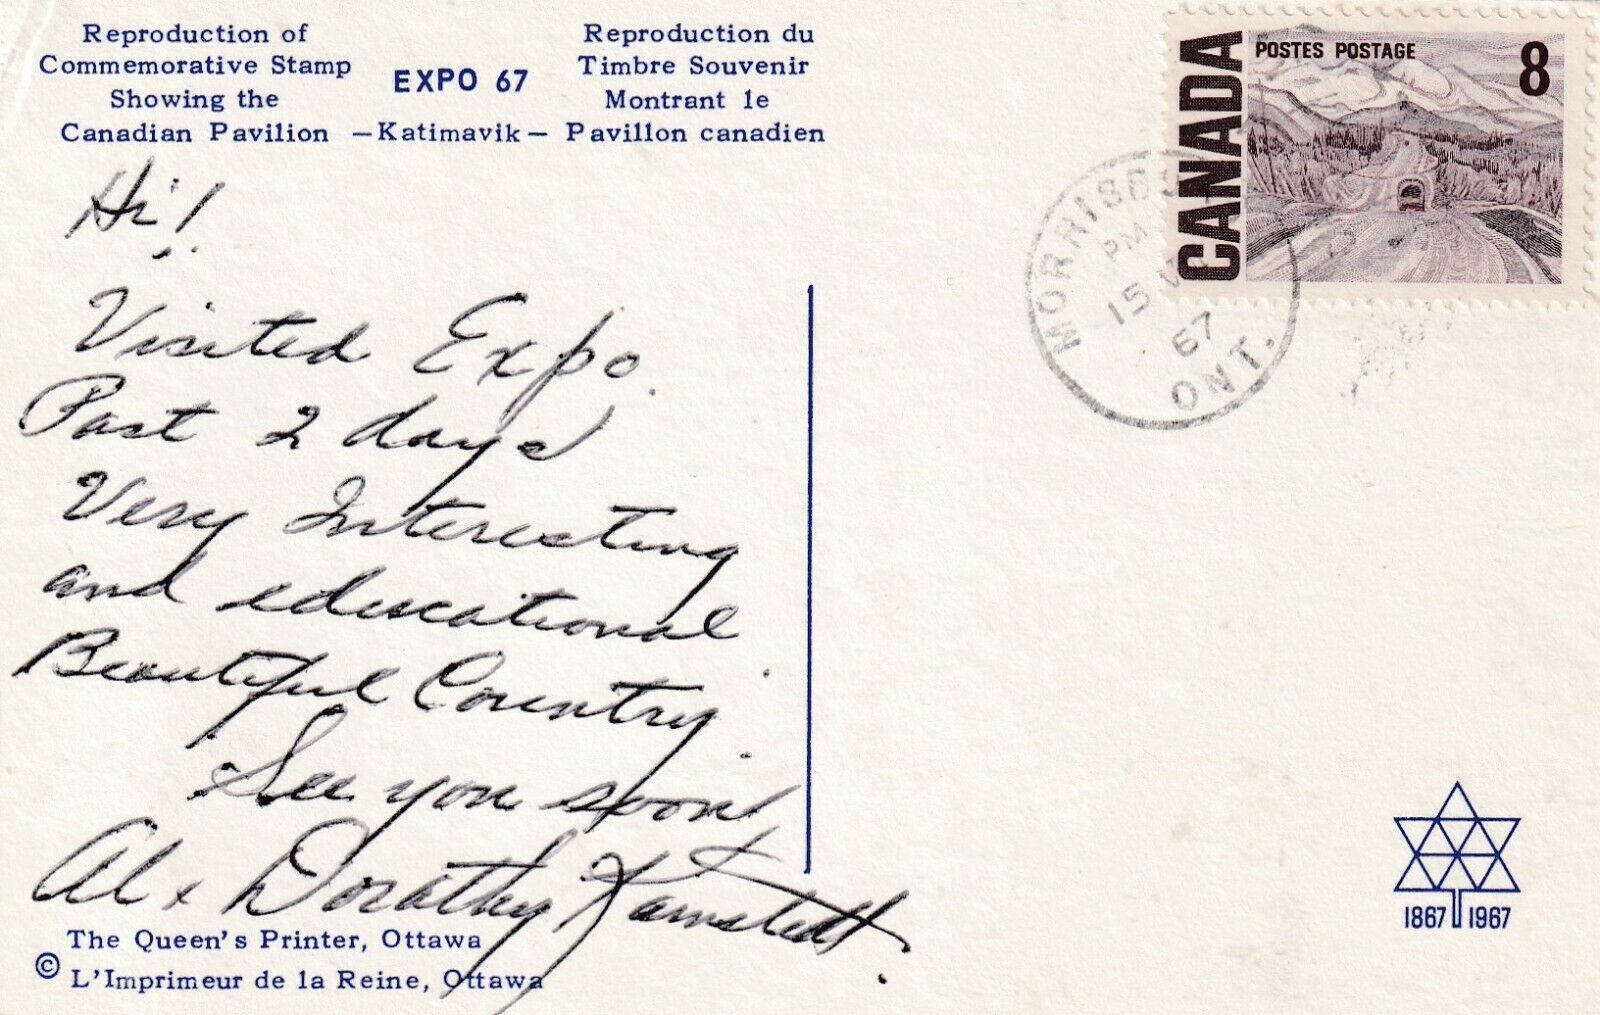 Reproduction of
Commemorative Stamp
Showing the
Canadian Pavilion
EXPO 67
—Katimavik—
Reproduction du
Timbre Souvenir
Montrant 1e
Pavillon canadien
CANADA
POSTES POSTAGE
8
MORRISB
PM
15
67
ONT.
Hi!
Visited Expo
Past 2 days
Very Interesting
and educational.
Beautiful Country.
See you soon
Al + Dorothy
The Queen's Printer, Ottawa
© L'Imprimeur de la Reine, Ottawa
1867 1967